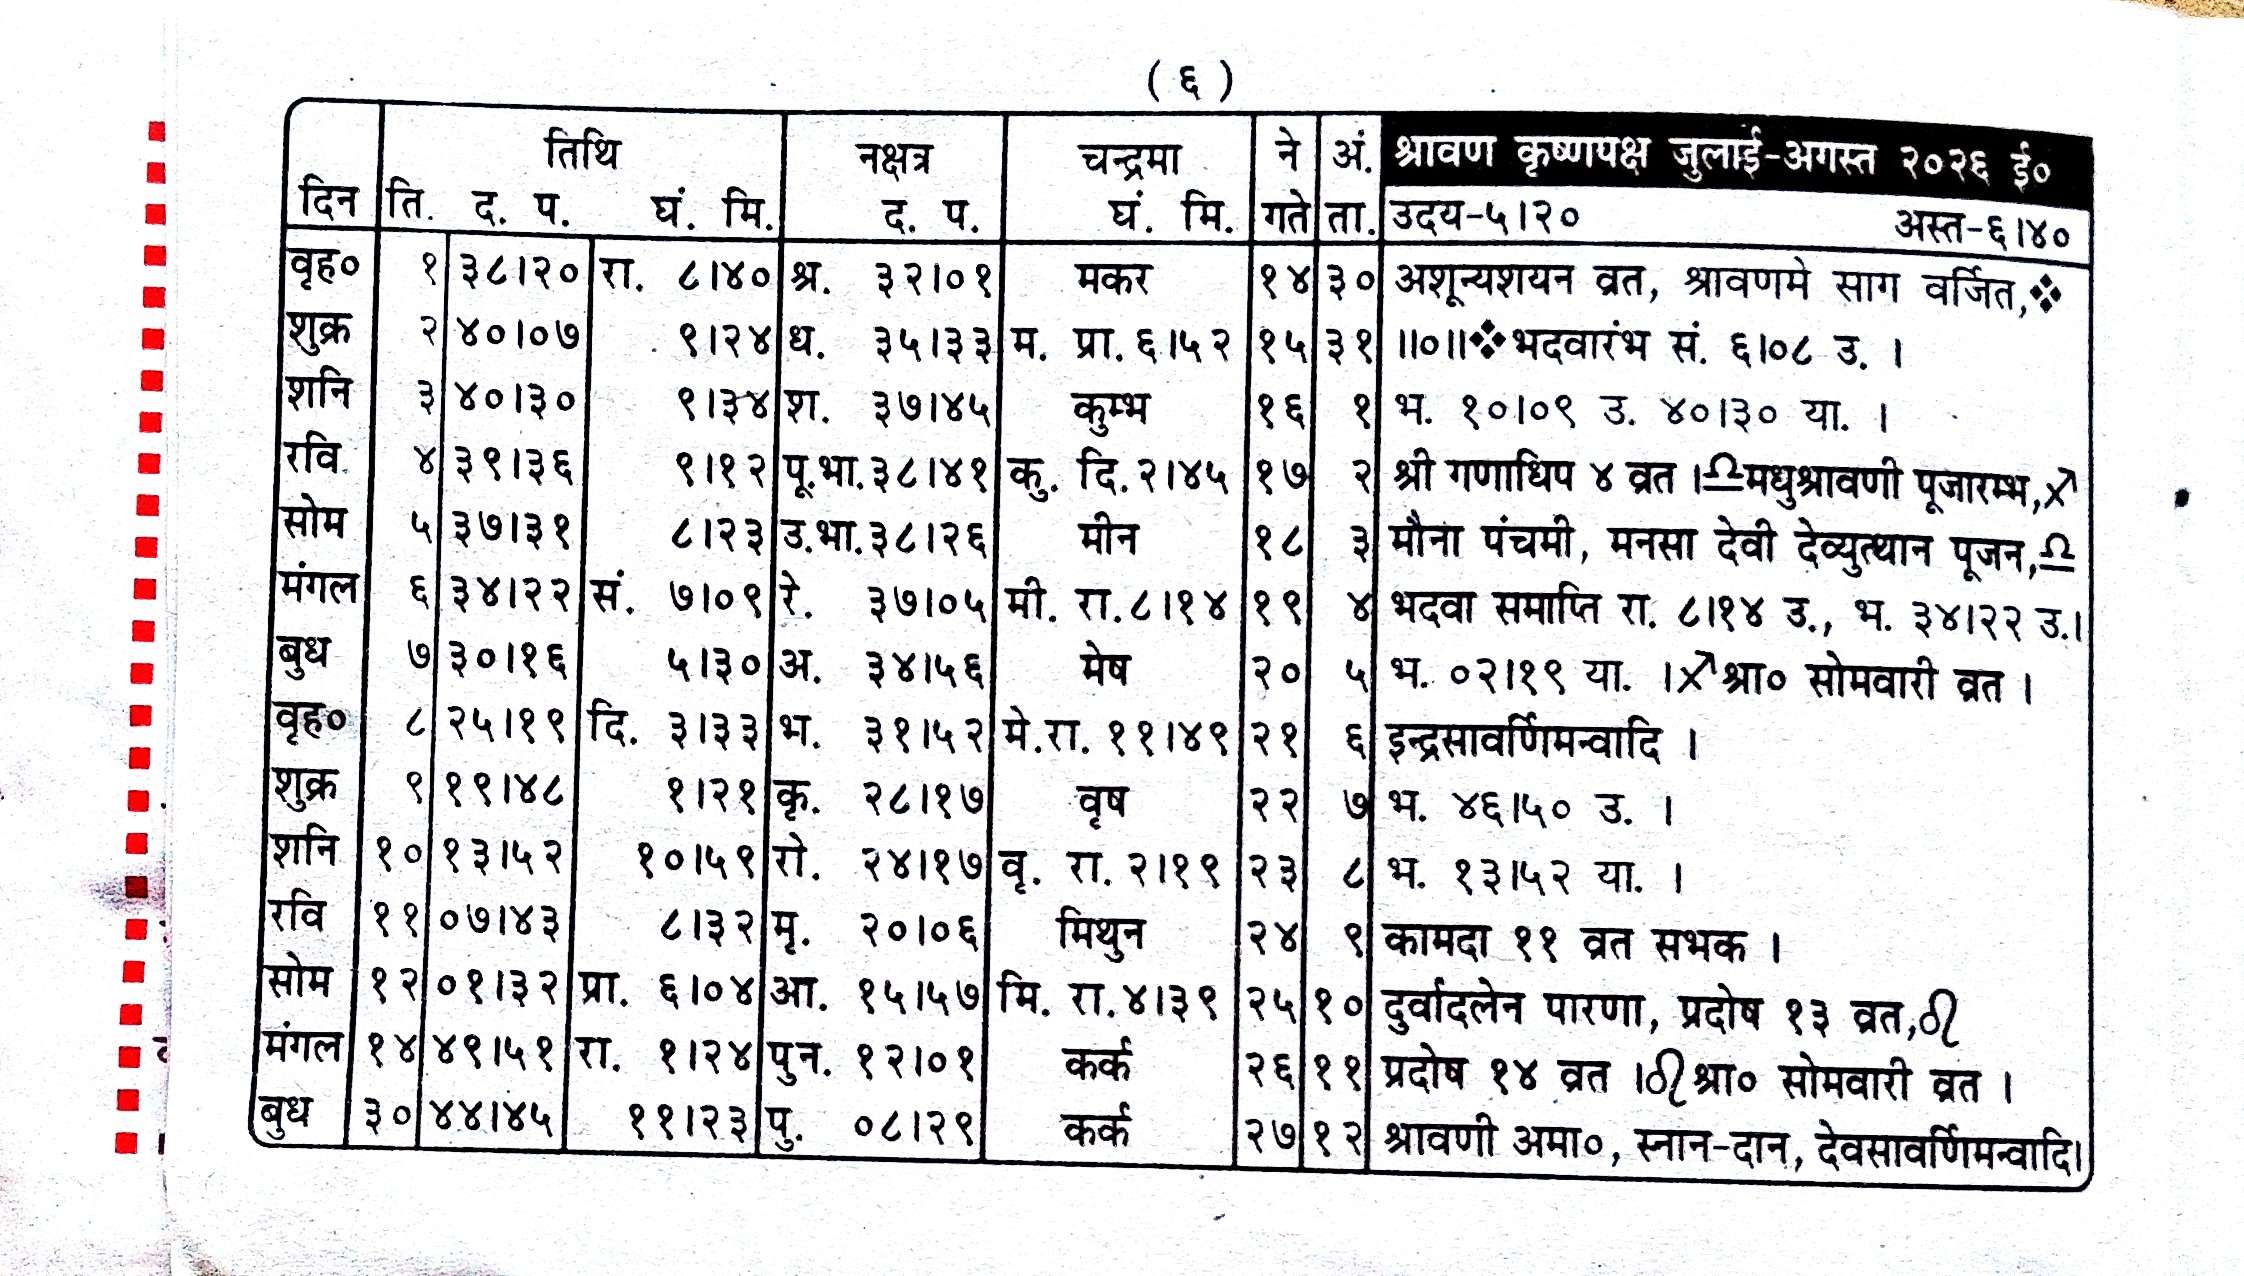 ( ६ )
तिथि नक्षत्र चन्द्रमा ने अं. श्रावण कृष्णपक्ष जुलाई-अगस्त २०२६ ई०
दिन ति. द. प. घं. मि. द. प. घं. मि. गते ता. उदय-५।२० अस्त-६।४०
वृह० १ ३८।२० रा. ८।४० श्र. ३२।०१ मकर १४ ३० अशून्यशयन व्रत, श्रावणमे साग वर्जित,❖
शुक्र २ ४०।०७ ९।२४ ध. ३५।३३ म. प्रा. ६।५२ १५ ३१ ॥०॥❖भदवारंभ सं. ६।०८ उ. ।
शनि ३ ४०।३० ९।३४ श. ३७।४५ कुम्भ १६ १ भ. १०।०९ उ. ४०।३० या. ।
रवि ४ ३९।३६ ९।१२ पू.भा. ३८।४१ कु. दि. २।४५ १७ २ श्री गणाधिप ४ व्रत ।♎मधुश्रावणी पूजारम्भ,♐
सोम ५ ३७।३१ ८।२३ उ.भा. ३८।२६ मीन १८ ३ मौना पंचमी, मनसा देवी देव्युत्थान पूजन,♎
मंगल ६ ३४।२२ सं. ७।०९ रे. ३७।०५ मी. रा. ८।१४ १९ ४ भदवा समाप्ति रा. ८।१४ उ., भ. ३४।२२ उ.।
बुध ७ ३०।१६ ५।३० अ. ३४।५६ मेष २० ५ भ. ०२।१९ या. ।♐श्रा० सोमवारी व्रत ।
वृह० ८ २५।१९ दि. ३।३३ भ. ३१।५२ मे.रा. ११।४९ २१ ६ इन्द्रसावर्णिमन्वादि ।
शुक्र ९ १९।४८ १।२१ कृ. २८।१७ वृष २२ ७ भ. ४६।५० उ. ।
शनि १० १३।५२ १०।५९ रो. २४।१७ वृ. रा. २।१९ २३ ८ भ. १३।५२ या. ।
रवि ११ ०७।४३ ८।३२ मृ. २०।०६ मिथुन २४ ९ कामदा ११ व्रत सभक ।
सोम १२ ०१।३२ प्रा. ६।०४ आ. १५।५७ मि. रा. ४।३९ २५ १० दुर्वादलेन पारणा, प्रदोष १३ व्रत,♌
मंगल १४ ४९।५१ रा. १।२४ पुन. १२।०१ कर्क २६ ११ प्रदोष १४ व्रत ।♌श्रा० सोमवारी व्रत ।
बुध ३० ४४।४५ ११।२३ पु. ०८।२९ कर्क २७ १२ श्रावणी अमा०, स्नान-दान, देवसावर्णिमन्वादि।